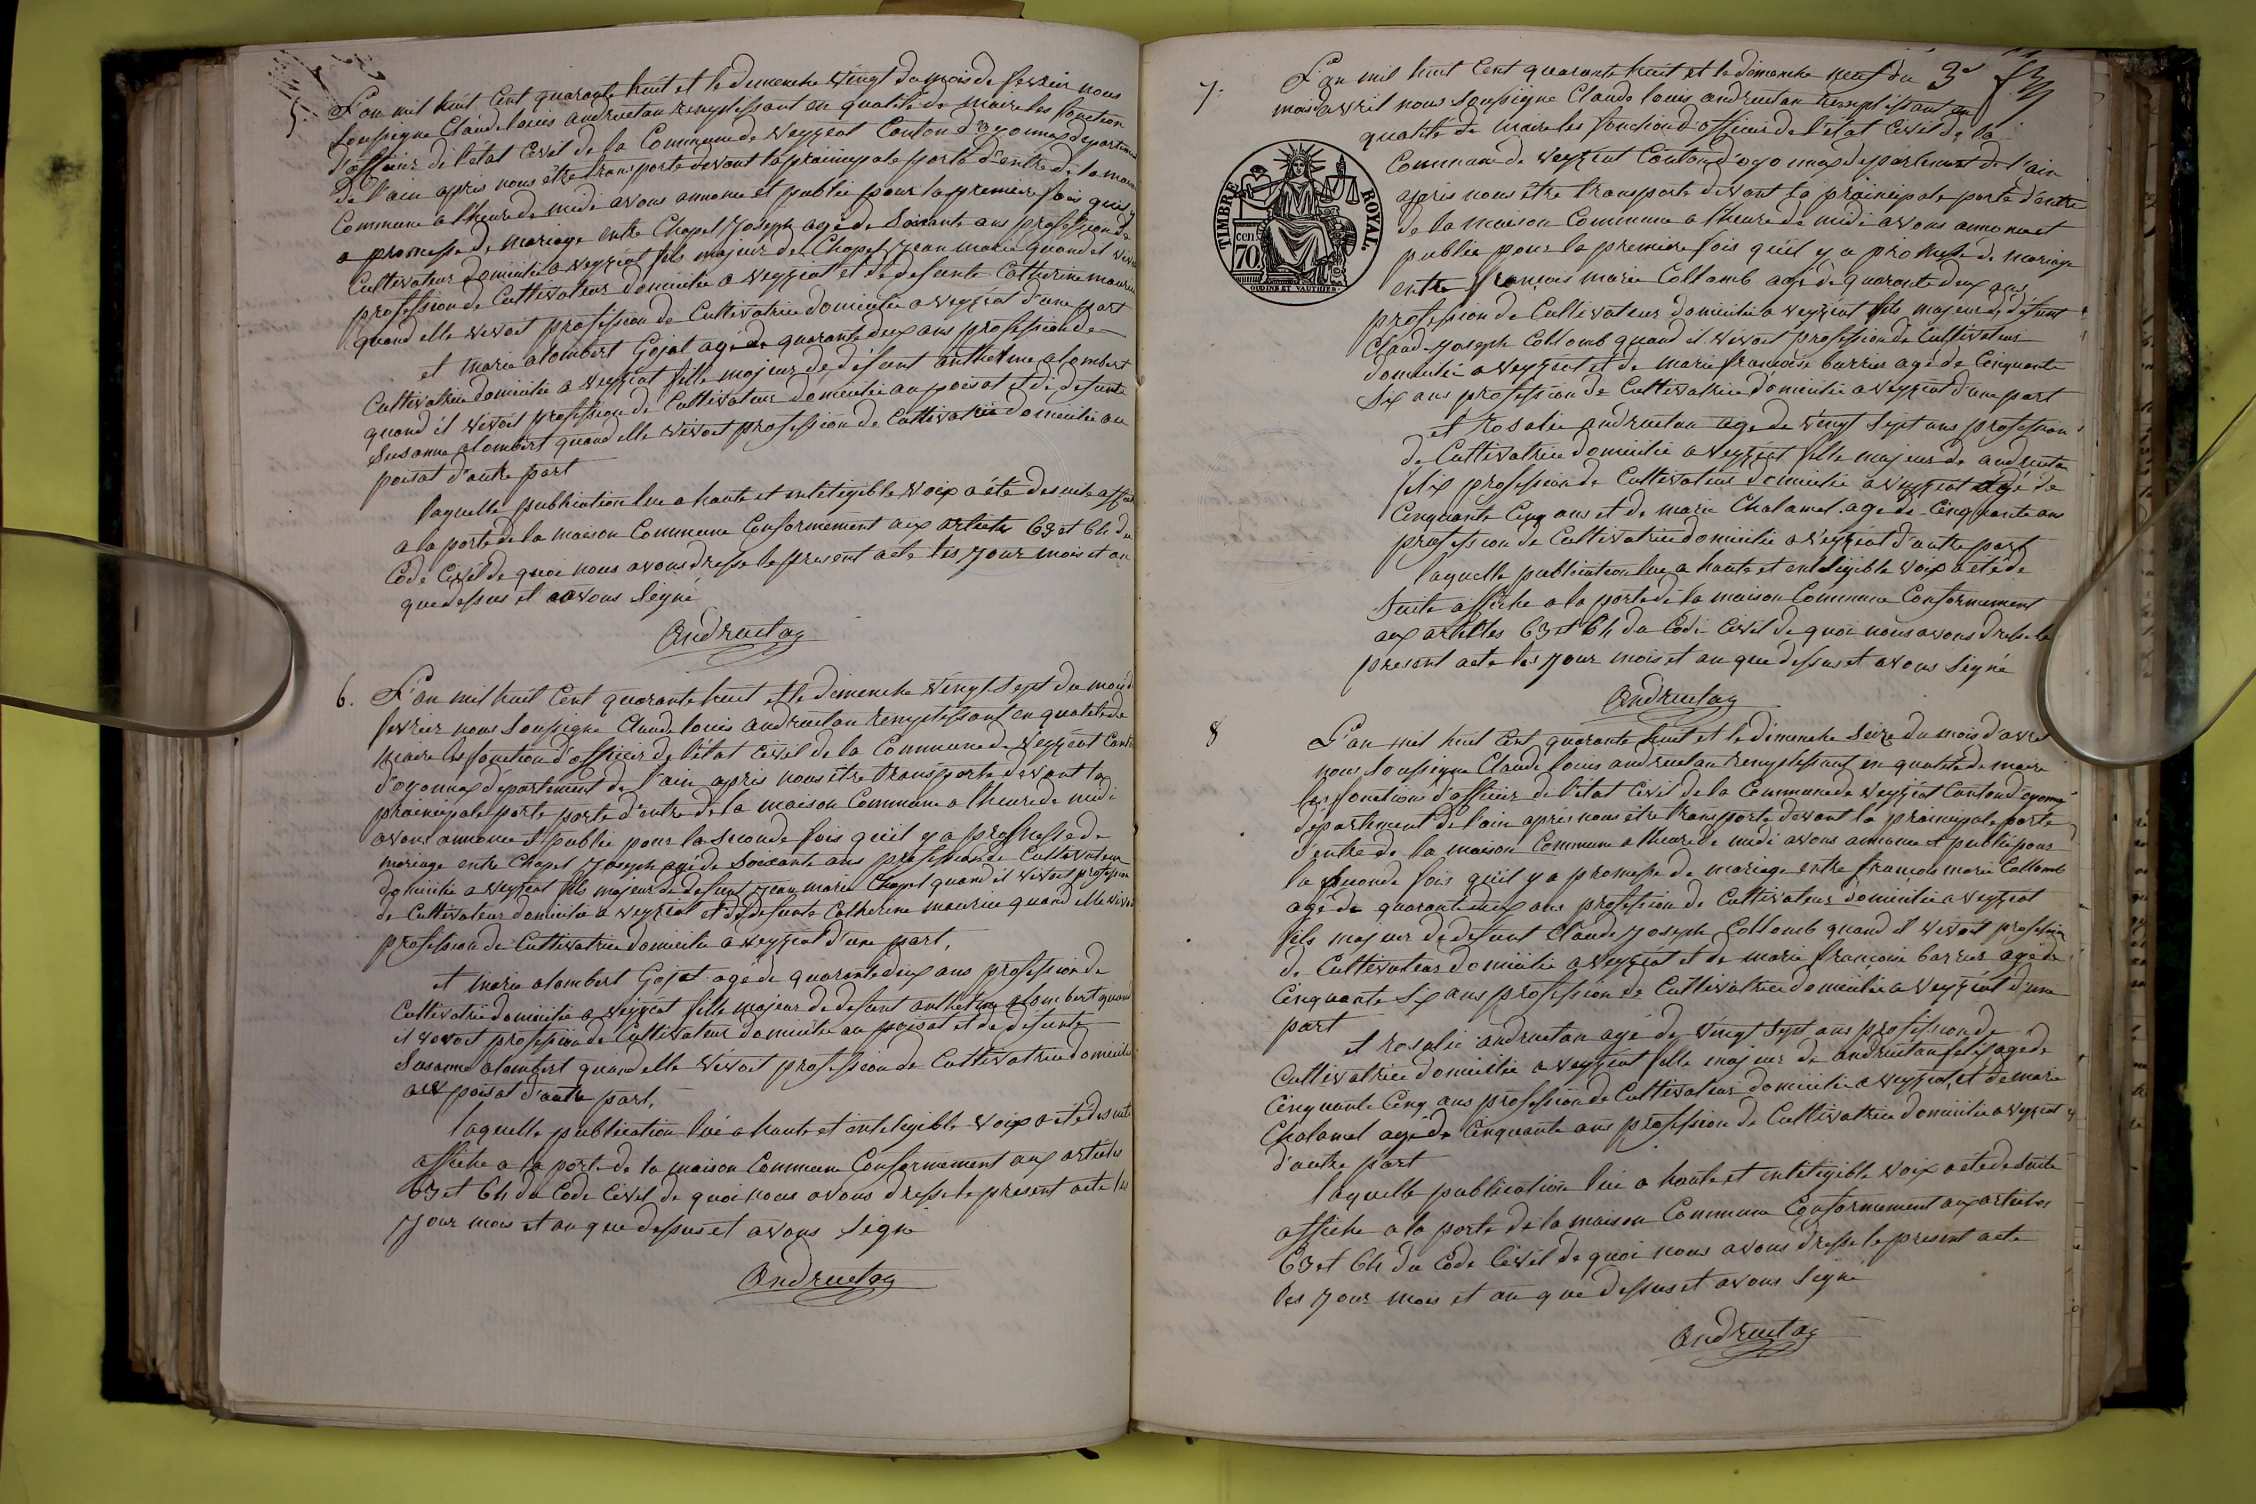 5. L'an mil huit Cent quarante huit et le dimenche vingt du mois de fevrier nous
Soussigne Claude louis andruetan remplissant en qualité de Maire les fonction
d'officier de l'état Civil de la Commune de veyziat Canton d'oyonnax departement
de l'ain apris nous être transporte devant la prainsipale porte d'entre de la maison
Commune a l'heure de midi avons annonce et publie pour la premiere fois qu'il y
a promesse de mariage entre Chapel Joseph agé de Soixante ans profession de
Cultivateur domicilie a veyziat fils majeur de Chapel Jean marie quand il vivoit
profession de Cultivateur domicilie a veyziat et de defunte Catherine maurin
quand elle vivoit profession de Cultivatrice domicilie a veyziat d'une part
et marie alombert Gojat agé de quarante deux ans profession de
Cultivatrice domicilie a veyziat fille majeur de défunt anthelme alombert
quand il vivoit profession de Cultivateur domicilie au poisat et de defunte
Susanne alombert quand elle vivoit profession de Cultivatrice domicilie au
poisat d'autre part
laquelle publication lue a haute et inteligible voix a été de suite affiche
a la porte de la maison Commune Conformement aux articles 63 et 64 du
Code Civil de quoi nous avons dresse le present acte les jour mois et an
que dessus et avons Signé
Andruetan
6. L'an mil huit Cent quarante huit et le dimenche vingt Sept du mois de
fevrier nous Soussigne Claude louis andruetan remplissant en qualité de
Maire les fonction d'officier de l'état Civil de la Commune de veyziat Canton
d'oyonnax département de l'ain apris nous être transporte devant la
prainsipale porte porte d'entre de la maison Commune a l'heure de midi
avons annonce et publie pour la seconde fois qu'il y a promesse de
mariage entre Chapel Joseph agé de Soixante ans profession de Cultivateur
domicilie a veyziat fils majeur de defunt Jean marie Chapel quand il vivoit profession
de Cultivateur domicilie a veyziat et de defunte Catherine maurin quand elle vivoit
profession de Cultivatrice domicilie a veyziat d'une part,
et marie alombert Gojat agé de quarante deux ans profession de
Cultivatrice domicilie a veyziat fille majeur de defunt anthelme alombert quand
il vivoit profession de Cultivateur domicilie au poisat et de défunte
Susanne alombert quand elle vivoit profession de Cultivatrice domicilie
au poisat d'autre part,
laquelle publication lue a haute et inteligible voix a été de suite
affiche a la porte de la maison Commune Conformement aux articles
63 et 64 du Code Civil de quoi nous avons dresse le present acte les
jour mois et an que dessus et avons Signé
Andruetan
7. L'an mil huit Cent quarante huit et le dimenche neuf du 3e
mois d'avril nous Soussigne Claude louis andruetan remplissant en
qualité de Maire les fonction d'officier de l'état Civil de la
Commune de veyziat Canton d'oyonnax departement de l'ain
apris nous être transporte devant la prainsipale porte d'entre
de la maison Commune a l'heure de midi avons annonce et
publie pour la premiere fois qu'il y a promesse de mariage
entre françois marie Collomb agé de quarante deux ans
profession de Cultivateur domicilie a veyziat fils majeur de défunt
Claude Joseph Collomb quand il vivoit profession de Cultivateur
domicilie a veyziat et de marie françoise barrier agé de Cinquante
Six ans profession de Cultivatrice domicilie a veyziat d'une part
et rosalie andruetan agé de vingt Sept ans profession
de Cultivatrice domicilie a veyziat fille majeur de andruetan
felix profession de Cultivateur domicilie a veyziat agé de
Cinquante Cinq ans et de marie Chalamel agé de Cinquante ans
profession de Cultivatrice domicilie a veyziat d'autre part
laquelle publication lue a haute et inteligible voix a été de
Suite affiche a la porte de la maison Commune Conformement
aux articles 63 et 64 du Code Civil de quoi nous avons dresse le
present acte les jour mois et an que dessus et avons Signé
Andruetan
TIMBRE ROYAL.
cen. 70
8 L'an mil huit Cent quarante huit et le dimenche Seize du mois d'avril
nous Soussigne Claude louis andruetan remplissant en qualité de maire
les fonctions d'officier de l'état Civil de la Commune de veyziat Canton d'oyonnax
departement de l'ain apris nous être transporte devant la prainsipale porte
d'entre de la maison Commune a l'heure de midi avons annonce et publie pour
la seconde fois qu'il y a promesse de mariage entre françois marie Collomb
agé de quarante deux ans profession de Cultivateur domicilie a veyziat
fils majeur de defunt Claude Joseph Collomb quand il vivoit profession
de Cultivateur domicilie a veyziat et de marie françoise barrier agé de
Cinquante Six ans profession de Cultivatrice domicilie a veyziat d'une
part
et rosalie andruetan agé de vingt Sept ans profession de
Cultivatrice domicilie a veyziat fille majeur de andruetan felix agé de
Cinquante Cinq ans profession de Cultivateur domicilie a veyziat, et de marie
Chalamel agé de Cinquante ans profession de Cultivatrice domicilie a veyziat
d'autre part
laquelle publication lue a haute et inteligible voix a été de Suite
affiche a la porte de la maison Commune Conformement aux articles
63 et 64 du Code Civil de quoi nous avons dresse le present acte
les jour mois et an que dessus et avons Signé
Andruetan